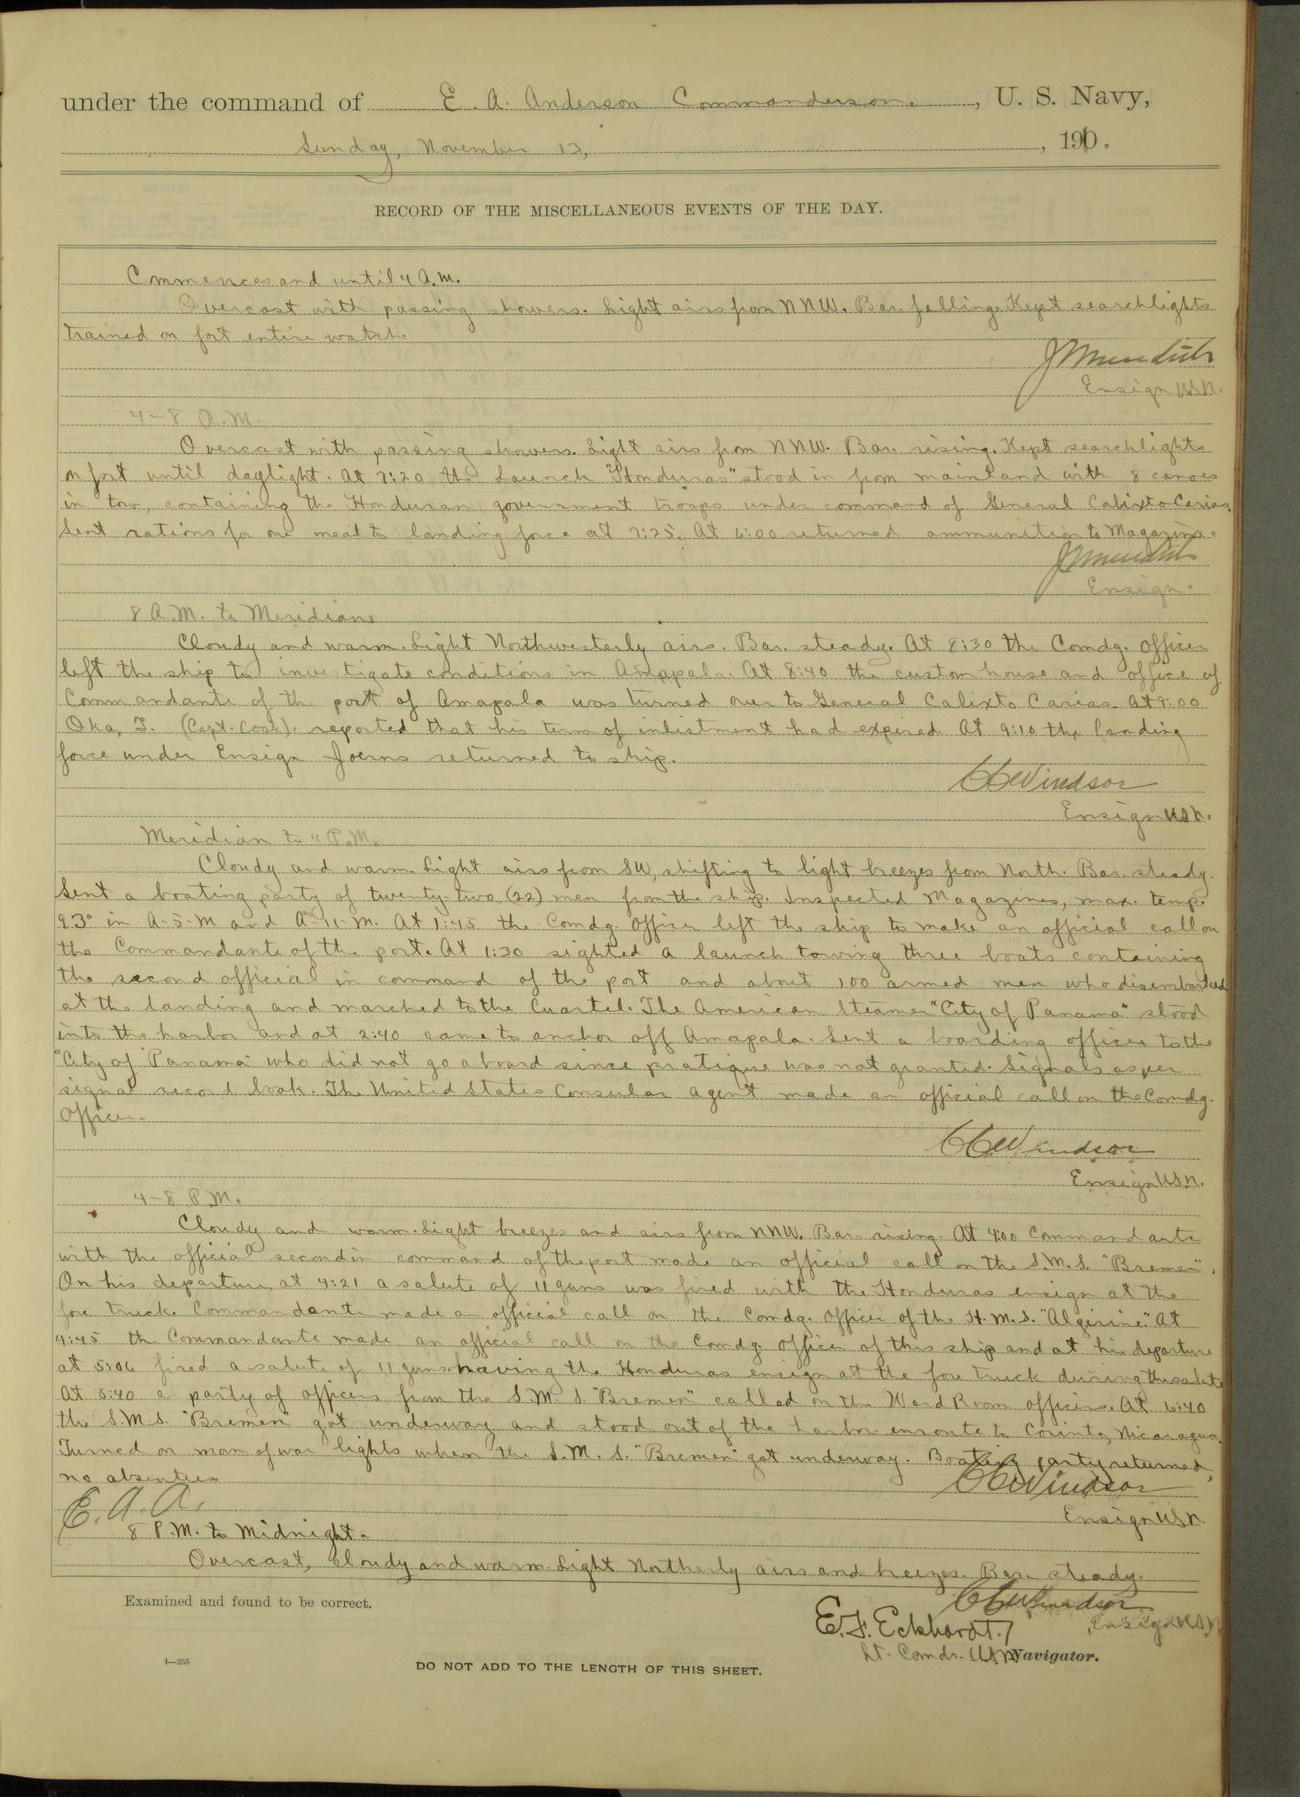 under the command of E. A. Anderson Commander, U. S. Navy,
Sunday, November 13, 1910.
RECORD OF THE MISCELLANEOUS EVENTS OF THE DAY.
Cmmences and until 4 A.M.
Overcast with passing showers. Light airs from NNW. Bar. falling. Kept searchlights
trained on fort entire watch.
J Meredith
Ensign U.S.N.
4-8 A.M.
Overcast with passing showers. Light airs from NNW. Bar. rising. Kept searchlights
on fort until daylight. At 7:20 the Launch "Honduras" stood in from mainland with 8 canoes
in tow, containing the Honduran government troops under command of General Calixto Carias.
Sent rations for one meal to landing force at 7:25. At 6:00 returned ammunition to Magazine.
J Meredith
Ensign.
8 A.M. to Meridian
Cloudy and warm. Light Northwesterly airs. Bar. steady. At 8:30 the Comdg. Officer
left the ship to investigate conditions in Amapala. At 8:40 the custom house and office of
Commandante of the port of Amapala was turned over to General Calixto Carias. At 9:00
Oka, T. (Capt. Cook). reported that his term of inlistment had expired. At 9:10 the landing
force under Ensign Joerns returned to ship.
CC Windsor
Ensign U.S.N.
Meridian to 4 P.M.
Cloudy and warm. Light airs from SW, shifting to light breezes from North. Bar. steady.
Sent a boating party of twenty-two (22) men from the ship. Inspected Magazines, max. temp.
93° in A-5-M and A-11-M. At 1:45 the Comdg. Officer left the ship to make an official call on
the Commandante of the port. At 1:30 sighted a launch towing three boats containing
the second official in command of the port and about 100 armed men who disembarked
at the landing and marched to the Cuartel. The American Steamer "City of Panama" stood
into the harbor and at 2:40 came to anchor off Amapala. Sent a boarding officer to the
"City of Panama" who did not go aboard since pratique was not granted. Signals as per
signal record book. The United States Consular Agent made an official call on the Comdg.
Officer.
CC Windsor
Ensign U.S.N.
4-8 P.M.
Cloudy and warm. Light breezes and airs from NNW. Bar. rising. At 4:00 Commandante
with the official second in command of the port made an official call on the S.M.S. "Bremen".
On his departure, at 4:21 a salute of 11 guns was fired with the Honduras ensign at the
fore truck. Commandante made an official call on the Comdg. Officer of the H.M.S. "Algerine." At
4:45 the Commandante made an official call on the Comdg. Officer of this ship and at his departure
at 5:06 fired a salute of 11 guns having the Honduras ensign at the fore truck during the salute
At 5:40 a party of officers from the S.M.S. "Bremen" called on the Ward Room officers. At 6:40
the S.M.S. "Bremen" got underway and stood out of the harbor enroute to Corinto, Nicaragua.
Turned on man of war lights when the S.M.S. "Bremen" got underway. Boating party returned,
no absentees
CC Windsor
Ensign U.S.N.
E. A. A.
8 P.M. to Midnight.
Overcast, cloudy and warm. Light Northerly airs and breezes. Bar. steady.
CC Windsor
Ensign U.S.N.
Examined and found to be correct.
E. F. Eckhardt.
Lt. Comdr. U.S.N. Navigator.
1—255
DO NOT ADD TO THE LENGTH OF THIS SHEET.